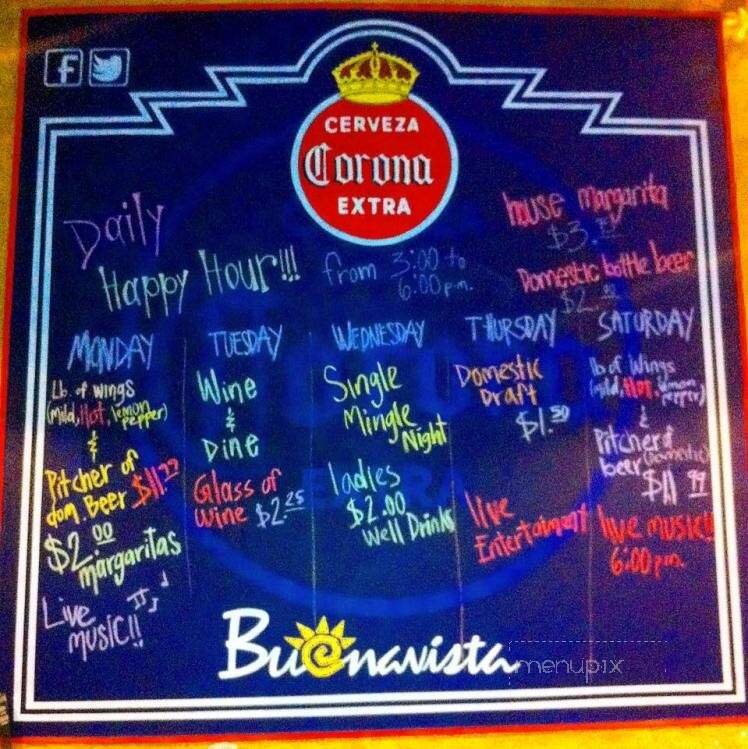 CERVEZA
Corona
EXTRA
Daily
Happy Hour!!!
from 3:00 to
6:00 p.m.
house margarita
Domestic bottle beer
MONDAY
Lb. of wings
(mild, Hot, lemon
pepper)
&
Pitcher of
dom. Beer
$2.00
margaritas
Live
music!!
TUESDAY
Wine
&
Dine
Glass of
wine $2.25
WEDNESDAY
Single
Mingle
Night
ladies
$2.00
Well Drinks
THURSDAY
Domestic
Draft
$1.50
live
Entertaiment
SATURDAY
lb of Wings
(mild, Hot, lemon
pepper)
&
Pitcher of
beer (domestic)
$11.99
live music!!
6:00 p.m.
Buenavista
menupix